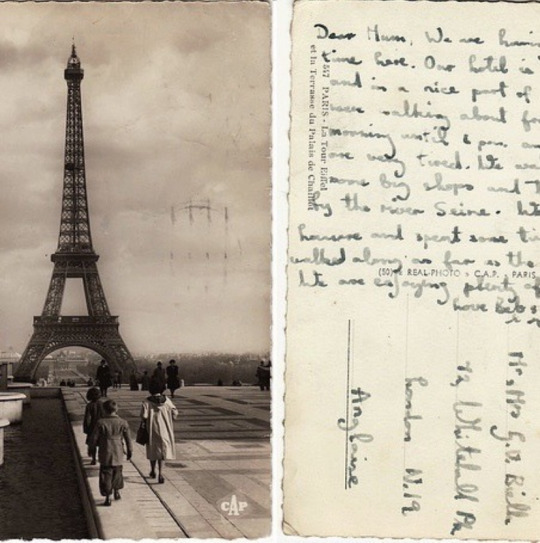 CAP
Dear Mum, We are havin
time here. Our hotel is
and in a nice part of
walking about fo
morning until 6 pm. an
are very tired. We
some big shops and
by the river Seine.
and spent some ti
walked along as far as the
We are enjoying plenty of
love
557 PARIS - La Tour Eiffel
et la Terrasse du Palais de Chaillot
(50) REAL-PHOTO C.A.P. PARIS
72, Whitehall Pk
London N.19